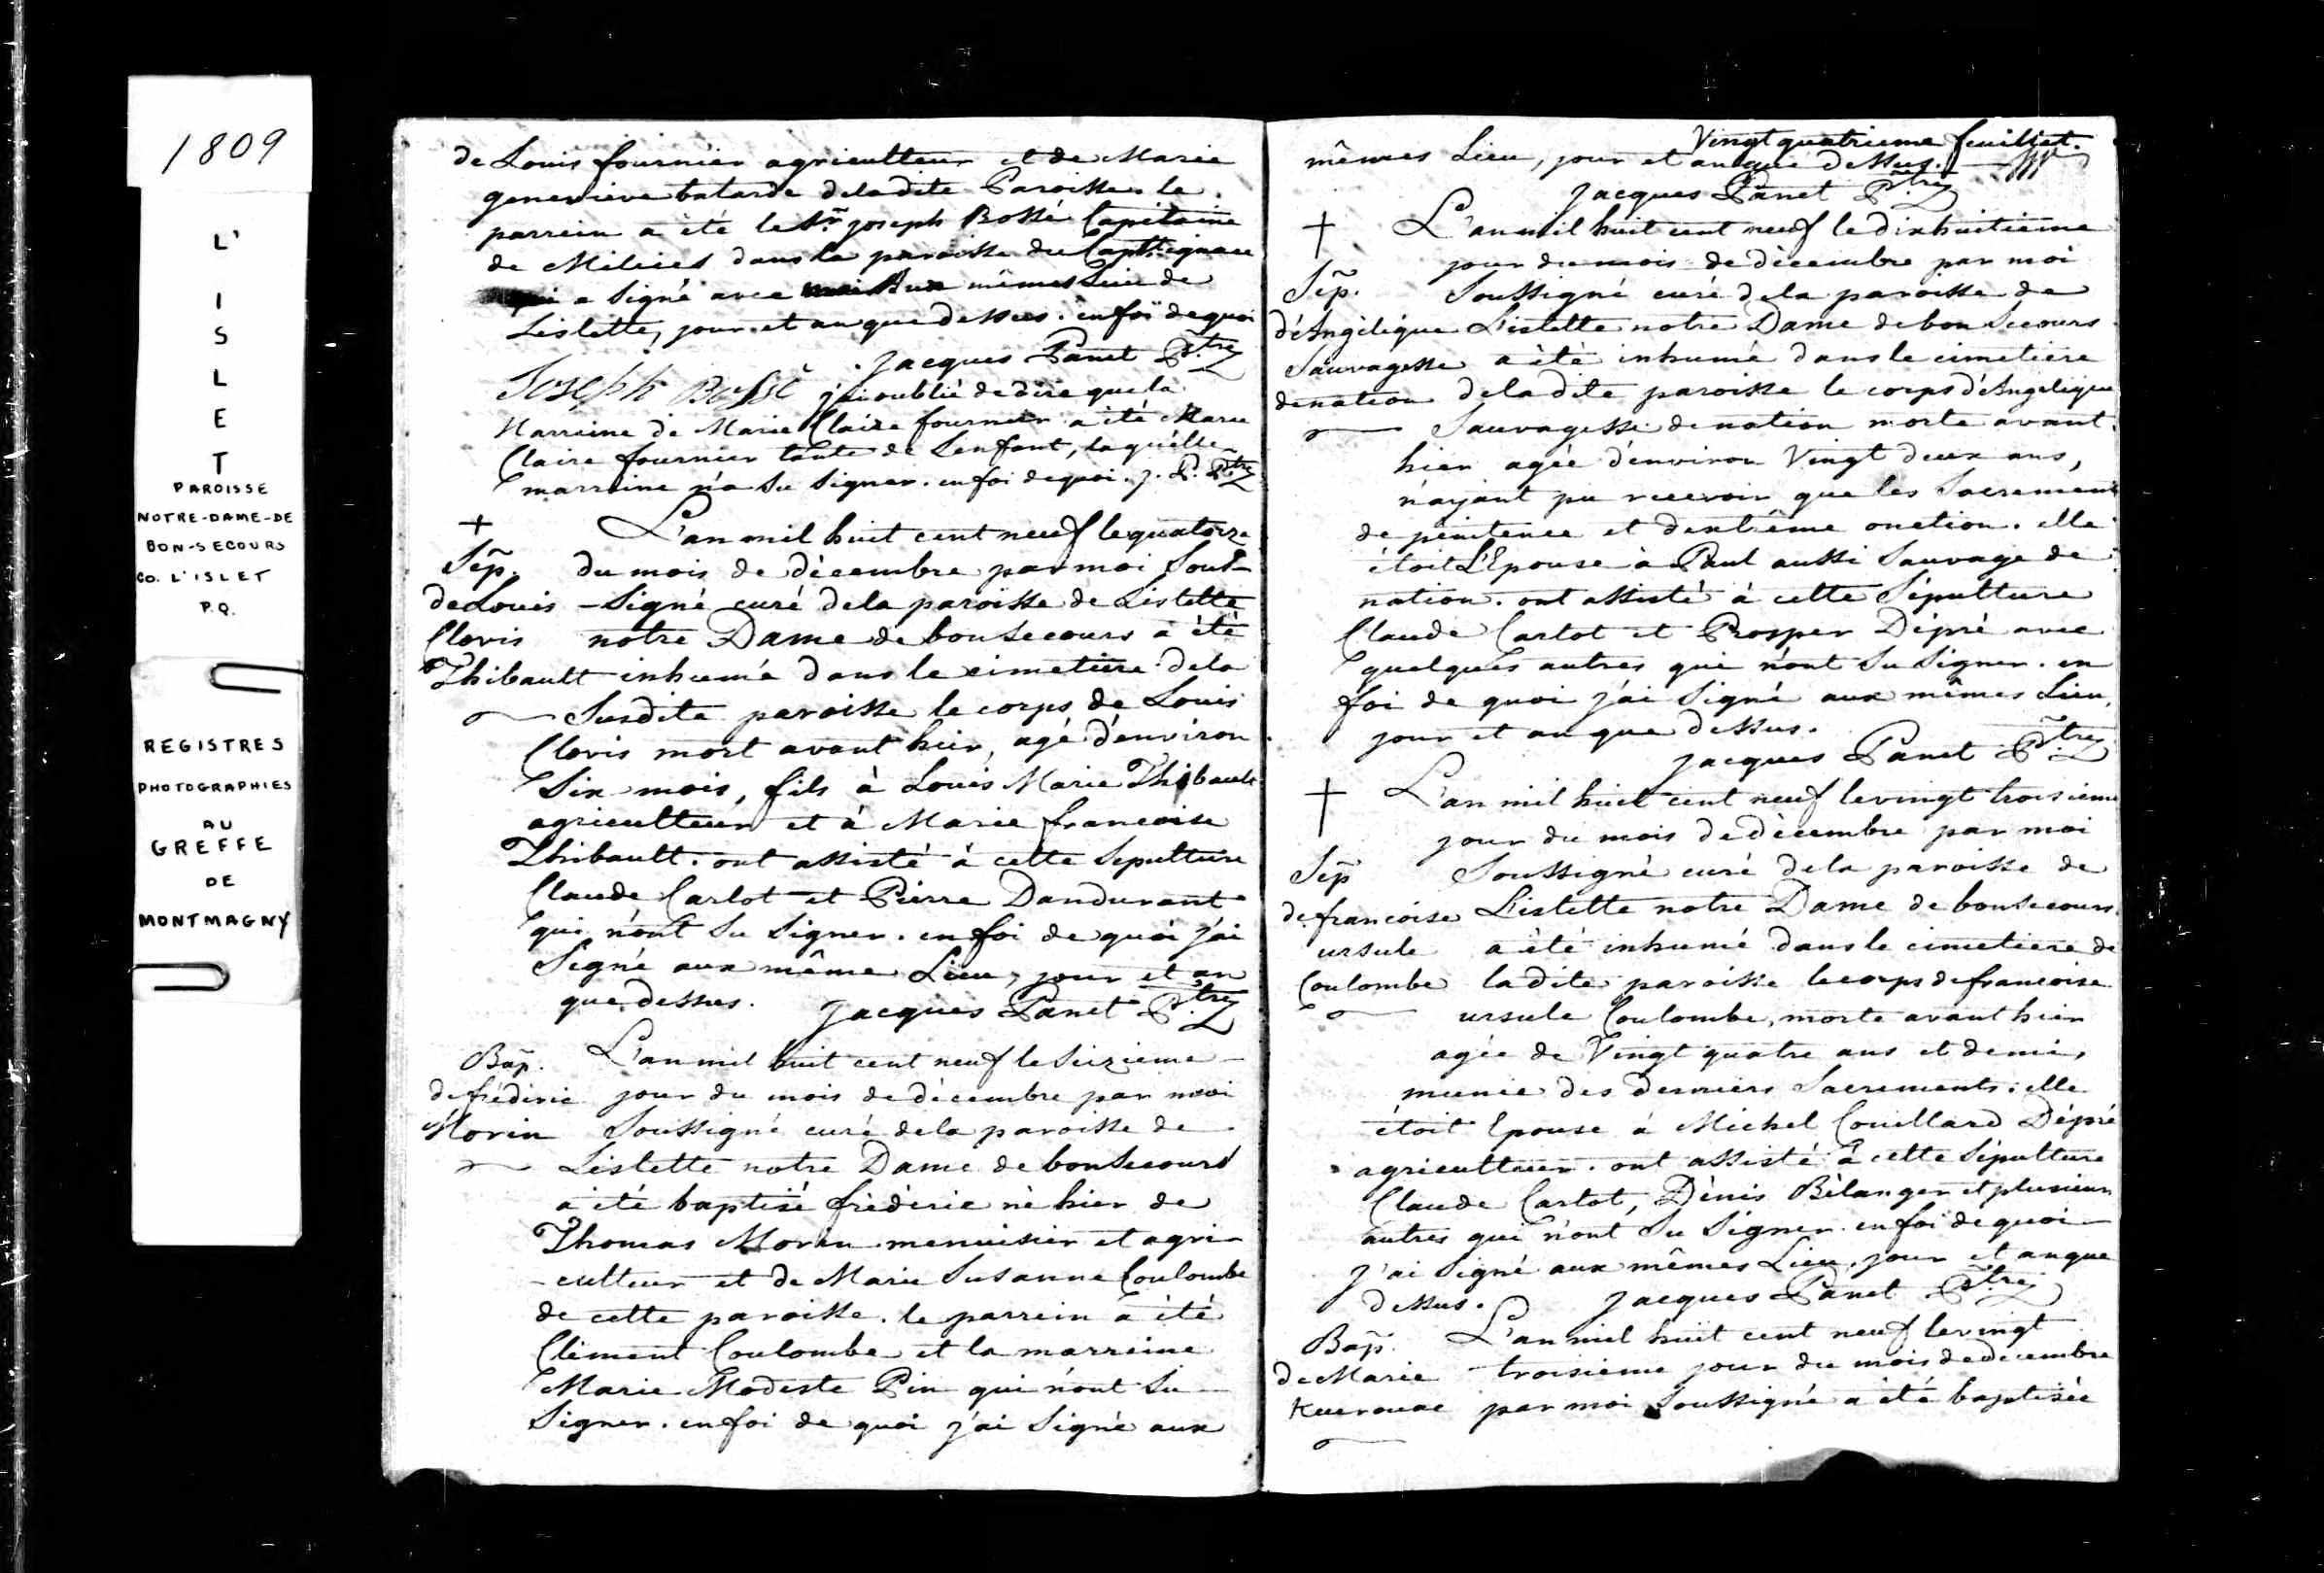 1809
L'
I
S
L
E
T
PAROISSE
NOTRE-DAME-DE
BON-SECOURS
CO. L'ISLET
P.Q.
REGISTRES
PHOTOGRAPHIES
AU
GREFFE
DE
MONTMAGNY
de Louis fournier agriculteur et de Marie
genevieve batarde dela dite Paroisse le
parrein a été le Sr. joseph Bossé Capitaine
de Milices dans la paroisse du Cap St ignace
qui a Signé avec aux mêmes Lieu de
Lislette, jour et an que dessus. en foi de quoi
Jacques Panet Ptre
Joseph Bossé j'ai oublié de dire que la
Marraine de Marie Claire fournier a été Marie
Claire fournier tante de L'enfant, laquelle
marraine n'a Su Signer. en foi de quoi. J. P. Ptre
+ L'an mil huit cent neuf le quatorze
Sép. du mois de décembre par moi Sous-
de Louis -Signé curé dela paroisse de Lislette
Clovis notre Dame de bonsecours a été
Thibault inhumé dans le cimetiere dela
Susdite paroisse le corps de Louis
Clovis mort avant hier, agé d'environ
Six mois, fils à Louis Marie Thibault
agriculteur et à Marie francoise
Thibault. ont assisté à cette Sepulture
Claude Carlot et Pierre Dandurant
qui n'ont Su Signer. en foi de quoi j'ai
Signé aux même Lieu, jour et an
que dessus. Jacques Panet Ptre
Bap. L'an mil huit cent neuf le Seizieme
de fréderic jour du mois de décembre par moi
Morin Soussigné curé dela paroisse de
Lislette notre Dame de bonsecours
a été baptisé fréderic né hier de
Thomas Morin menuisier et agri-
-culteur et de Marie Susanne Coulombe
de cette paroisse. le parrein a été
Clément Coulombe et la marreine
Marie Modeste Pin qui n'ont Su
Signer. en foi de quoi j'ai Signé aux
Vingt quatrieme feuillet.
mêmes Lieu, jour et an que dessus.
Jacques Panet Ptre
+ L'an mil huit cent neuf le dixhuitieme
jour du mois de décembre par moi
Sép. Soussigné curé dela paroisse de
d'Angélique L'islette notre Dame de bon Secours
Sauvagesse a été inhumé dans le cimetiere
de nation dela dite paroisse le corps d'Angelique
Sauvagesse de nation morte avant
hier agée d'environ Vingt deux ans,
n'ayant pu recevoir que les Sacrements
de penitence et d'extrême onction. elle
étoit L'Epouse à Paul aussi Sauvage de
nation. ont assisté à cette Sépulture
Claude Carlot et Prosper Dépré avec
quelques autres qui n'ont Su Signer. en
foi de quoi j'ai Signé aux mêmes Lieu,
jour et an que dessus.
Jacques Panet Ptre
+ L'an mil huit cent neuf le vingt troisieme
jour du mois de décembre par moi
Sép Soussigné curé dela paroisse de
de francoise L'islette notre Dame de bonsecours
ursule a été inhumé dans le cimetiere de
Coulombe la dite paroisse le corps de francoise
ursule Coulombe, morte avant hier
agée de Vingt quatre ans et demi,
munie des derniers Sacrements. elle
étoit Epouse à Michel Couillard Dépré
agriculteur. ont assisté à cette Sépulture
Claude Carlot, Dénis Bélanger et plusieurs
autres qui n'ont Su Signer. en foi de quoi
J'ai Signé aux mêmes Lieu, jour et an que
dessus. Jacques Panet Ptre
Bap. L'an mil huit cent neuf le vingt
de Marie troisieme jour du mois de décembre
Kuerouac par moi Soussigné a été baptisée